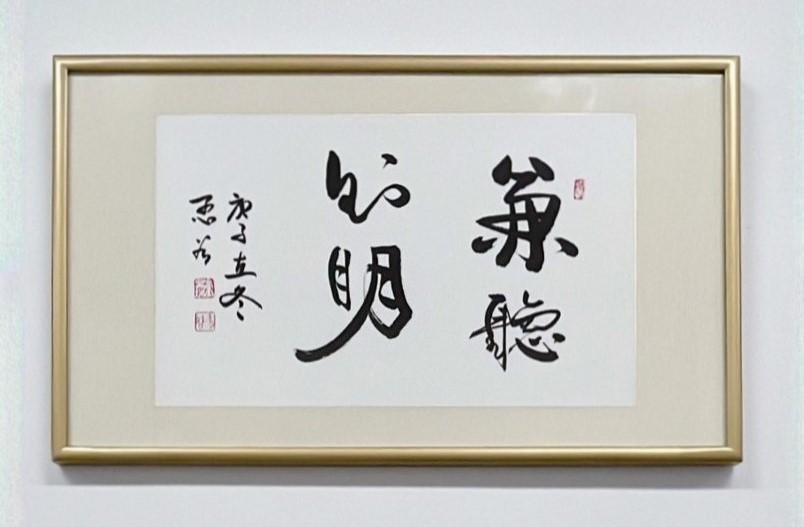 兼聽
則明
庚子立冬